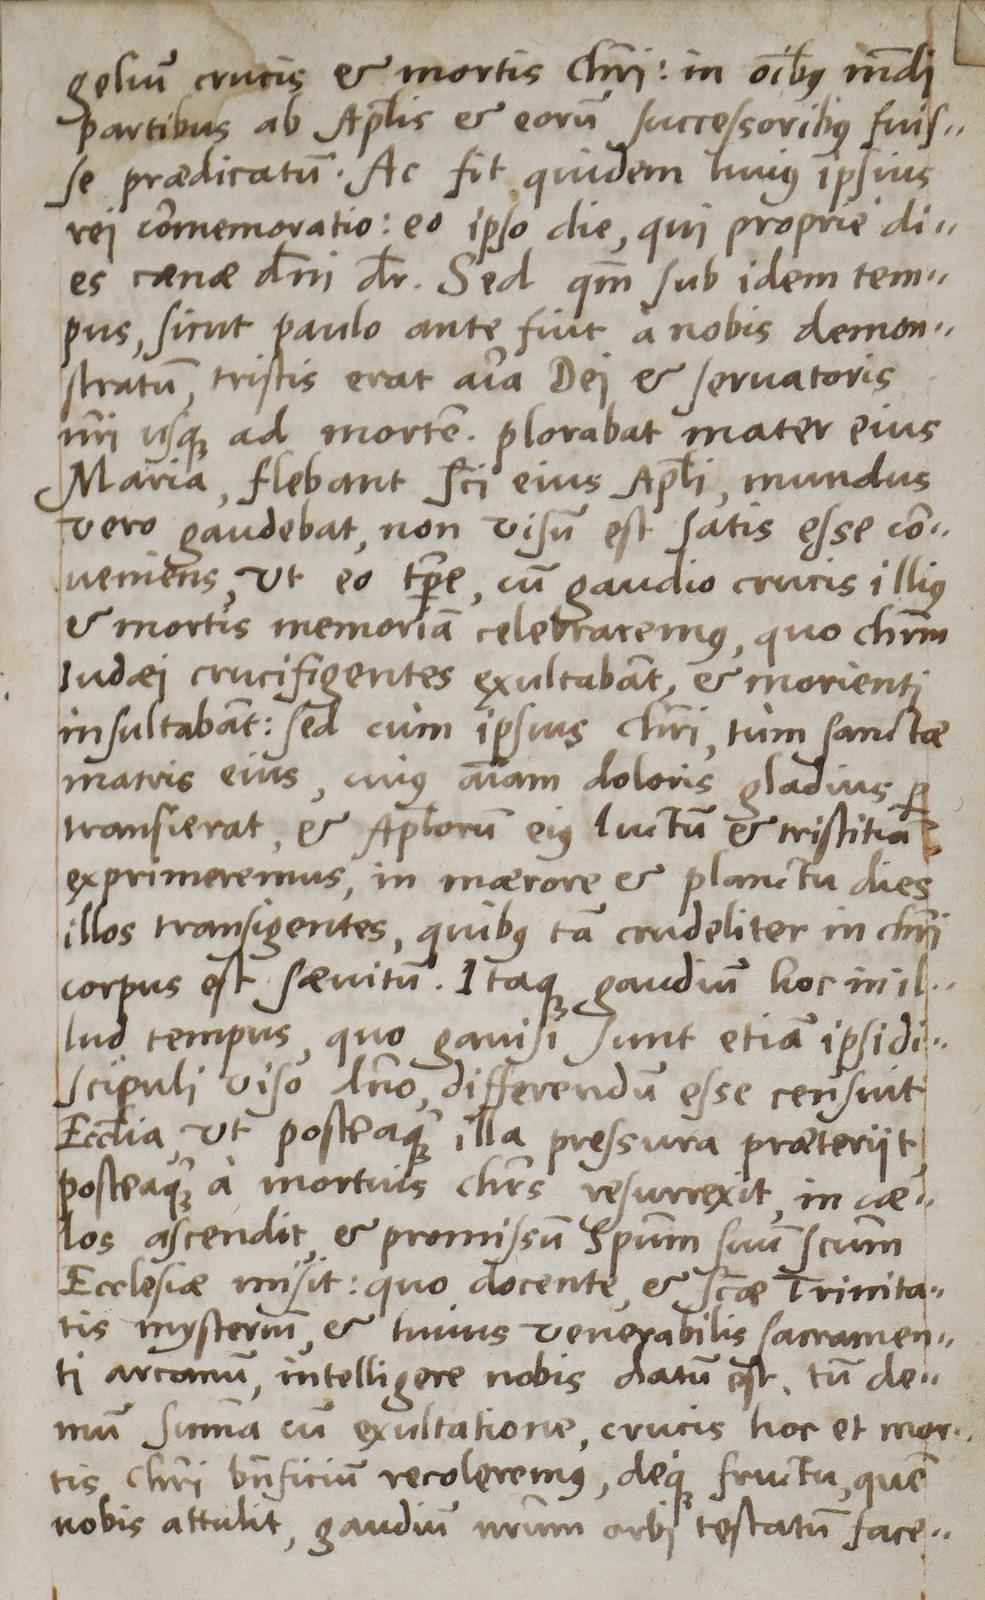 geliũ crucis & mortis Chr̃i: in oĩbꝰ mũdi
partibus ab Apl̃is & eorũ successoribꝰ fuis-
se prædicatũ. Ac fit quidem huiꝰ ipsius
rei com̃emoratio: eo ipso die, qui proprie di-
es cænæ dñi dr̃. Sed qm̃ sub idem tem-
pus, sicut paulo ante fuit à nobis demon-
stratũ, tristis erat aĩa Dei & seruatoris
nr̃i usqꝫ ad mortẽ. plorabat mater eius
Maria, flebant Sc̃i eius Apl̃i, mundus
vero gaudebat, non visũ est satis esse cõ-
ueniens, vt eo tp̃re, cũ gaudio crucis illiꝰ
& mortis memoriã celebraremꝰ, quo chr̃m
Iudæi crucifigentes exultabãt, & morienti
insultabãt: sed cùm ipsius Chr̃i, tùm sanctæ
matris eius, cuiꝰ aĩam doloris gladius ꝑ
transierat, & Apl̃orũ eiꝰ luctũ & tristitiã
exprimeremus, in mærore & planctu dies
illos transigentes, quibꝰ tã crudeliter in chr̃i
corpus est sæuitũ. Itaqꝫ gaudiũ hoc in il-
lud tempus, quo gauisi sunt etiã ipsi di-
scipuli viso dño, differendũ esse censuit
Eccl̃ia, vt posteaqꝫ̃ illa pressura præteriit,
posteaqꝫ̃ à mortuis chr̃s resurrexit, in cæ-
los ascendit, & promissũ Spũm suũ scũm
Ecclesiæ misit: quo docente, & sc̃æ Trinita-
tis mysteriũ, & huius venerabilis sacramen-
ti arcanũ, intelligere nobis datũ est, tũ de-
mũ sum̃a cũ exultatione, crucis hoc et mor-
tis Chr̃i bñficiũ recoleremꝰ, deqꝫ fructu, quẽ
nobis attulit, gaudiũ nr̃um orbi testatũ face-